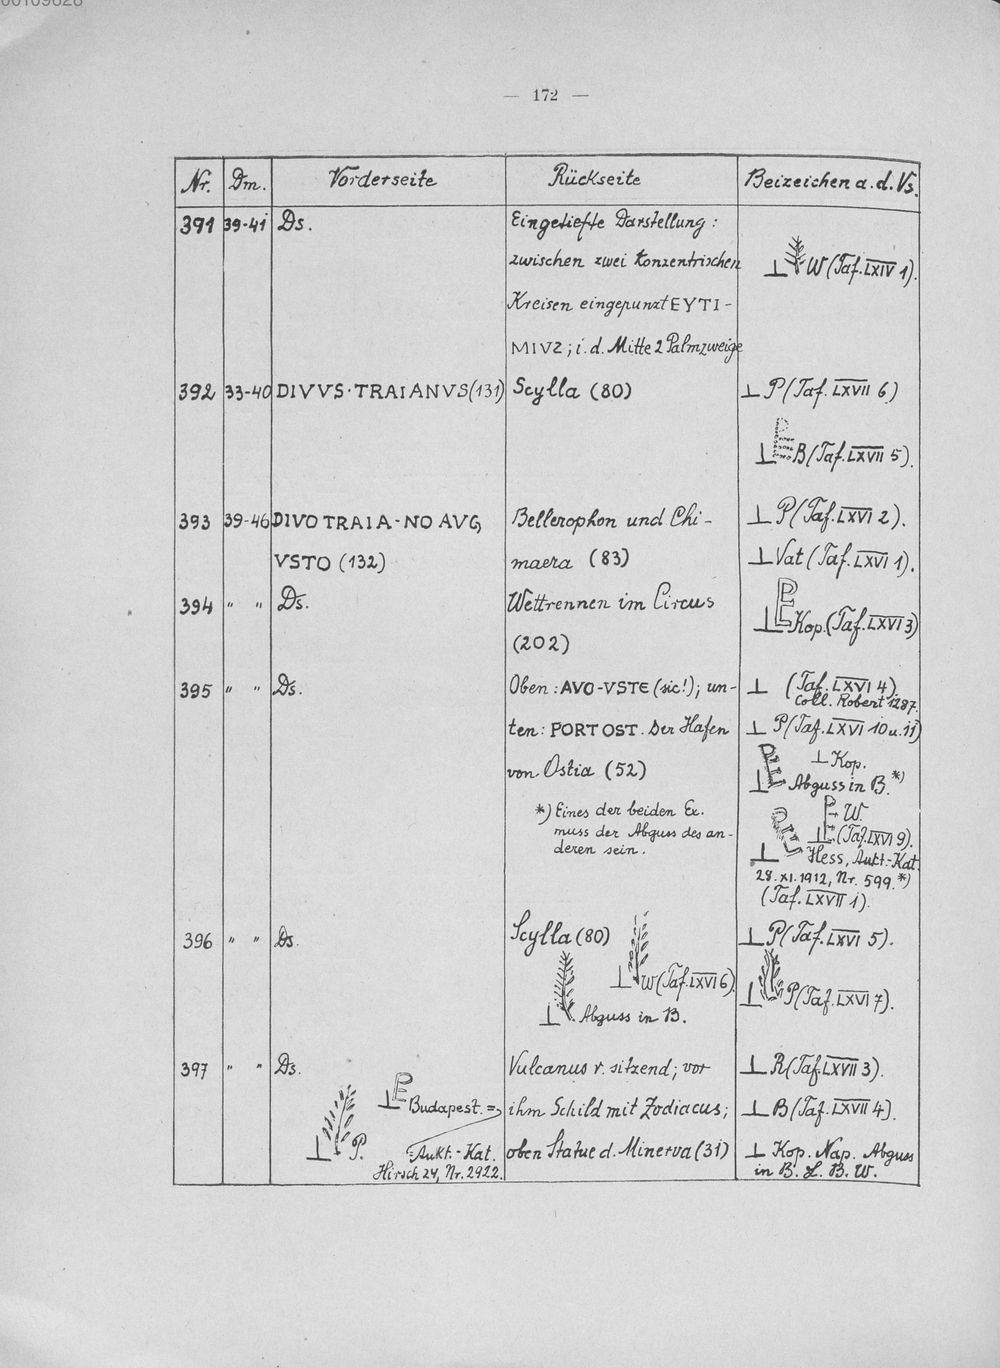 — 172 —
Nr. Dm. Vorderseite Rückseite Beizeichen a. d. Vs.
391 39-41 Ds. Eingetiefte Darstellung:
zwischen zwei konzentrischen
W (Taf. LXIV 1).
Kreisen eingepunzt EYTI-
MIVZ; i. d. Mitte 2 Palmzweige
392 33-40 DIVVS·TRAIANVS (131) Scylla (80) ⊥ P (Taf. LXVII 6)
⊥ PE B (Taf. LXVII 5).
393 39-46 DIVO TRAIA-NO AVG, Bellerophon und Chi- ⊥ P (Taf. LXVI 2).
VSTO (132) maera (83) ⊥ Vat (Taf. LXVI 1).
394 " " Ds. Wettrennen im Circus ⊥ PE Kop. (Taf. LXVI 3)
(202)
395 " " Ds. Oben: AVO-VSTE (sic!); un- ⊥ (Taf. LXVI 4)
Coll. Robert 1287.
ten: PORT OST. Der Hafen ⊥ P (Taf. LXVI 10 u. 11)
von Ostia (52) ⊥ PE ⊥ Kop.
Abguss in B. *)
*) Eines der beiden Ex.
muss der Abguss des an-
deren sein.
⊥ PE W.
(Taf. LXVI 9).
⊥ PE Hess, Aukt.-Kat.
28. XI. 1912, Nr. 599. *)
(Taf. LXVII 1).
396 " " Ds. Scylla (80) ⊥ P (Taf. LXVI 5).
⊥ W (Taf. LXVI 6).
⊥ P (Taf. LXVI 7).
⊥ Abguss in B.
397 " " Ds. Vulcanus r. sitzend; vor ⊥ R (Taf. LXVII 3).
⊥ PE Budapest. = ihm Schild mit Zodiacus; ⊥ B (Taf. LXVII 4).
⊥ P. Aukt.-Kat. oben Statue d. Minerva (31) ⊥ Kop. Nap. Abguss
Hirsch 24, Nr. 2922. in B. L. B. W.